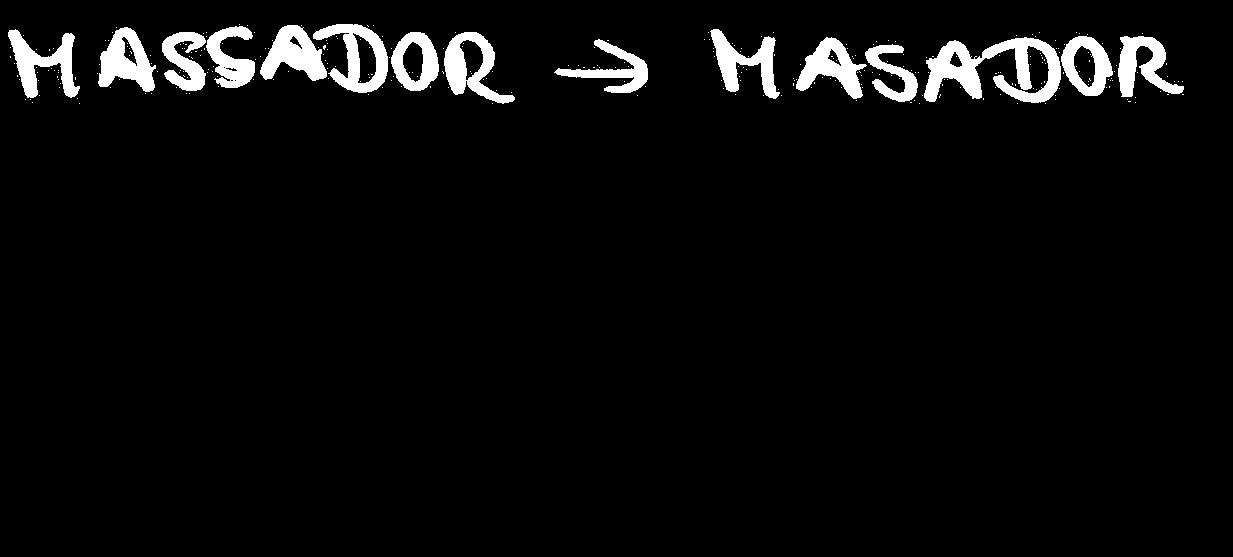 MASSADOR → MASADOR